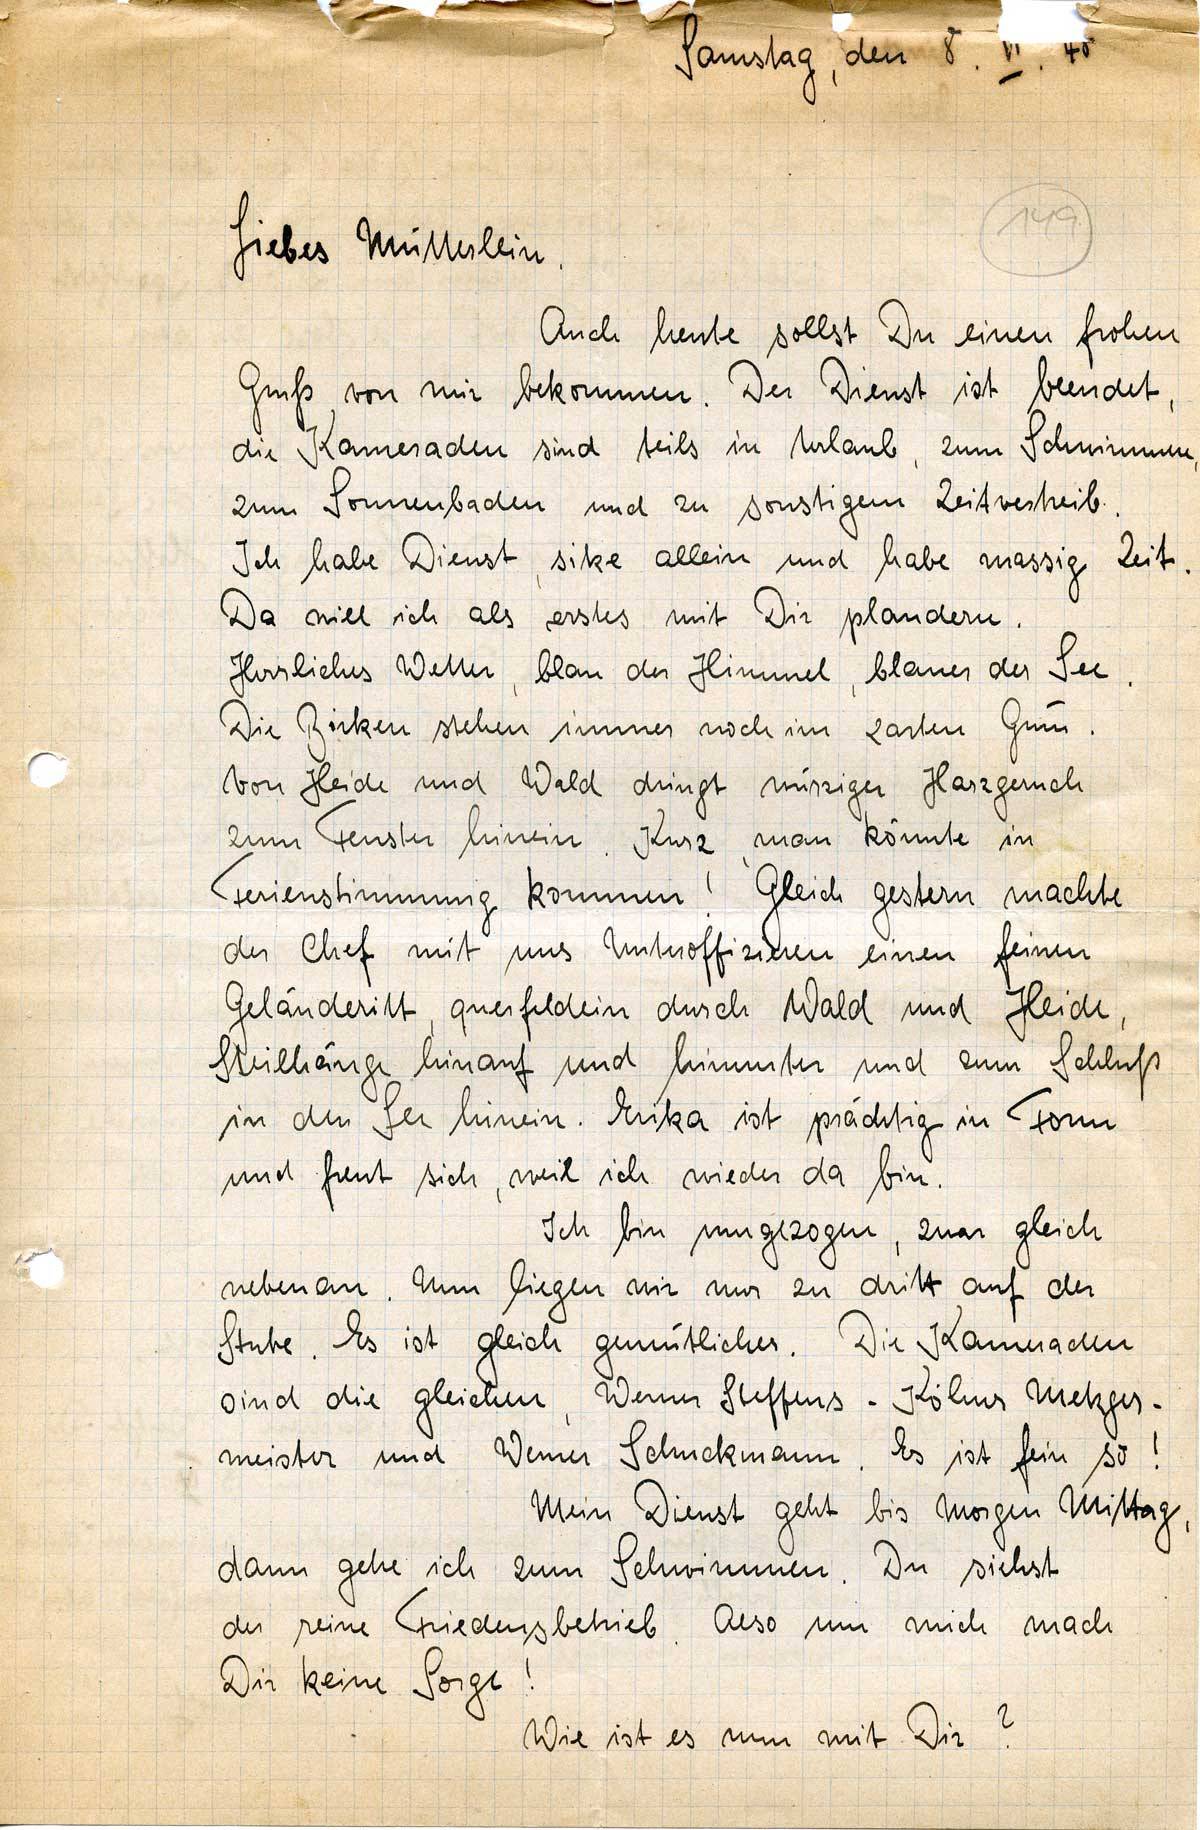 Samstag, den 8. VI. 40
149
Liebes Mütterlein.
Auch heute sollst Du einen frohen
Gruß von mir bekommen. Der Dienst ist beendet,
die Kameraden sind teils in Urlaub, zum Schwimmen,
zum Sonnenbaden und zu sonstigem Zeitvertreib.
Ich habe Dienst, sitze allein und habe massig Zeit.
Da will ich als erstes mit Dir plaudern.
Herrliches Wetter, blau der Himmel, blauer der See.
Die Birken stehen immer noch im zarten Grün.
Von Heide und Wald dringt würziger Harzgeruch
zum Fenster hinein. Kurz, man könnte in
Ferienstimmung kommen! Gleich gestern machte
der Chef mit uns Unteroffizieren einen feinen
Geländeritt, querfeldein durch Wald und Heide,
Steilhänge hinauf und hinunter und zum Schluß
in den See hinein. Erika ist prächtig in Form
und freut sich, weil ich wieder da bin.
Ich bin umgezogen, zwar gleich
nebenan. Nun liegen wir nur zu dritt auf der
Stube. Es ist gleich gemütlicher. Die Kameraden
sind die gleichen, Werner Steffens - Kölner Metzger-
meister und Werner Schuckmann. Es ist fein so!
Mein Dienst geht bis morgen Mittag,
dann gehe ich zum Schwimmen. Du siehst
der reine Friedensbetrieb. Also um mich mach
Dir keine Sorge!
Wie ist es nun mit Dir?